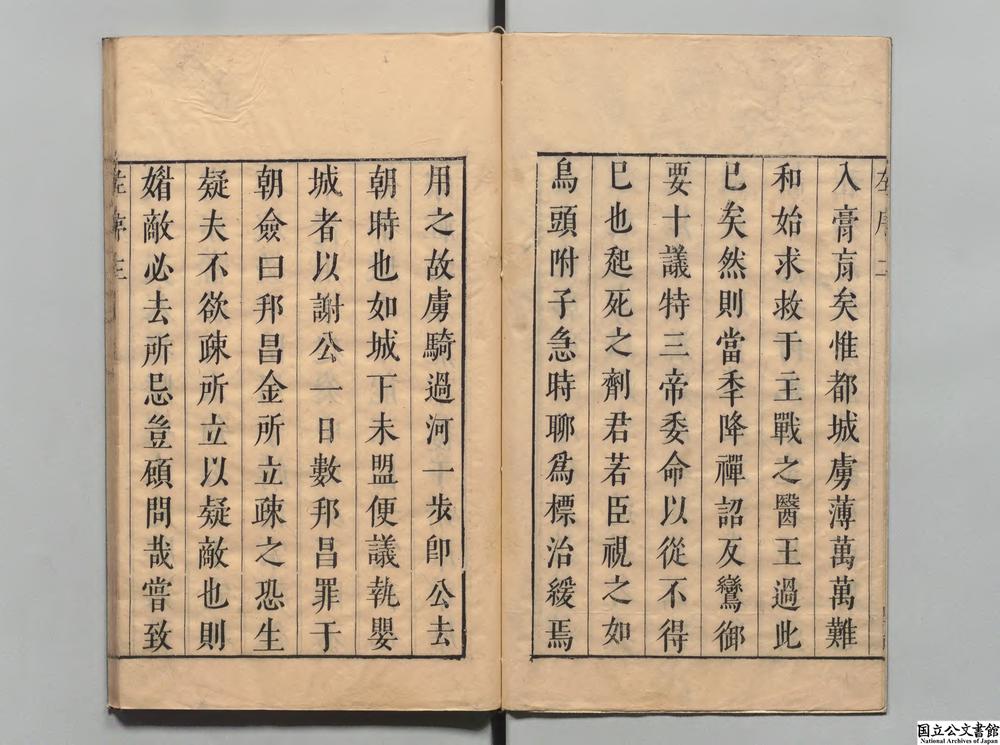 入膏肓矣惟都城虜薄萬萬難
和始求救于主戰之醫王過此
已矣然則當秊降禪詔反鸞御
要十議特三帝委命以從不得
已也起死之劑君若臣視之如
烏頭附子急時聊爲標治緩焉
用之故虜騎過河一步卽公去
朝時也如城下未盟便議執嬰
城者以謝公一日數邦昌罪于
朝僉曰邦昌金所立疎之恐生
疑夫不欲疎所立以疑敵也則
媘敵必去所忌豈頋問哉嘗致
国立公文書館
National Archives of Japan